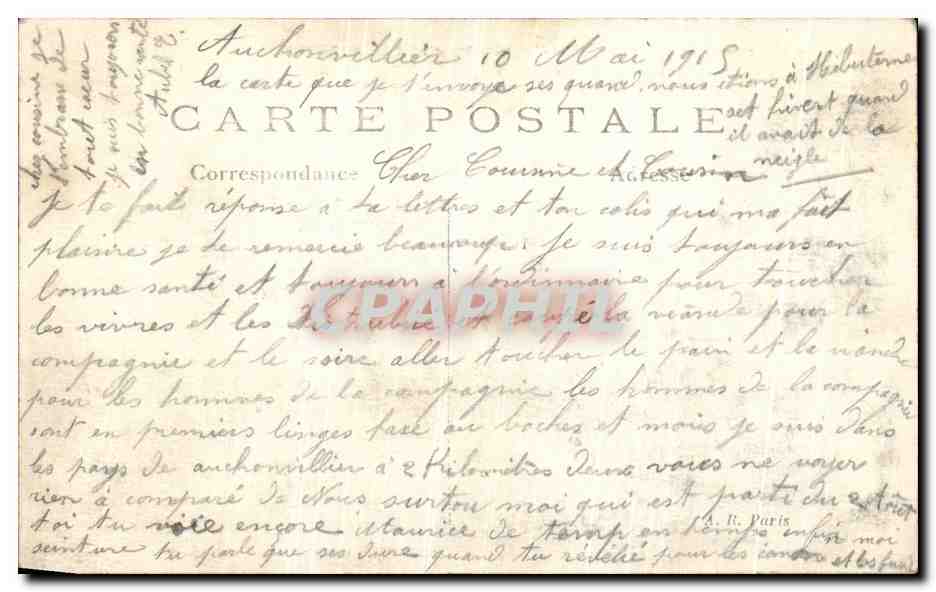 Auchonvillier 10 Mai 1915
la carte que je t'envoye ses quand nous etions à Hébuterne
set hivert quand
il avait de la
neigle
CARTE POSTALE
Correspondance
Adresse
Cher Cousine et Cousin
Je te fait réponse à ta lettres et ton colis qui ma fait
plaisire je te remercie beaucoup. Je suis toujours en
bonne santé et toujours à l'ordinnaire pour toucher
les vivres et les distribué et coupé la viande pour la
compagnie et le soire aller toucher le pain et la viande
pour les hommes de la compagnie les hommes de la compagnie
sont en premiers linges face au boches et mois je suis dans
les pays de auchonvillier à 2 Kilomètres deux vous ne voyer
rien a comparé de Nous surtou moi qui est parti du 2 Août
toi tu voie encore Maurice de temp en temps enfin moi
seinture tu parle que ses dure quand tu révéllé pour les
et les
A. R. Paris
cher cousine je
t'embrasse de
tout cœur
je suis toujours
en bonne santé
CPAPHIL